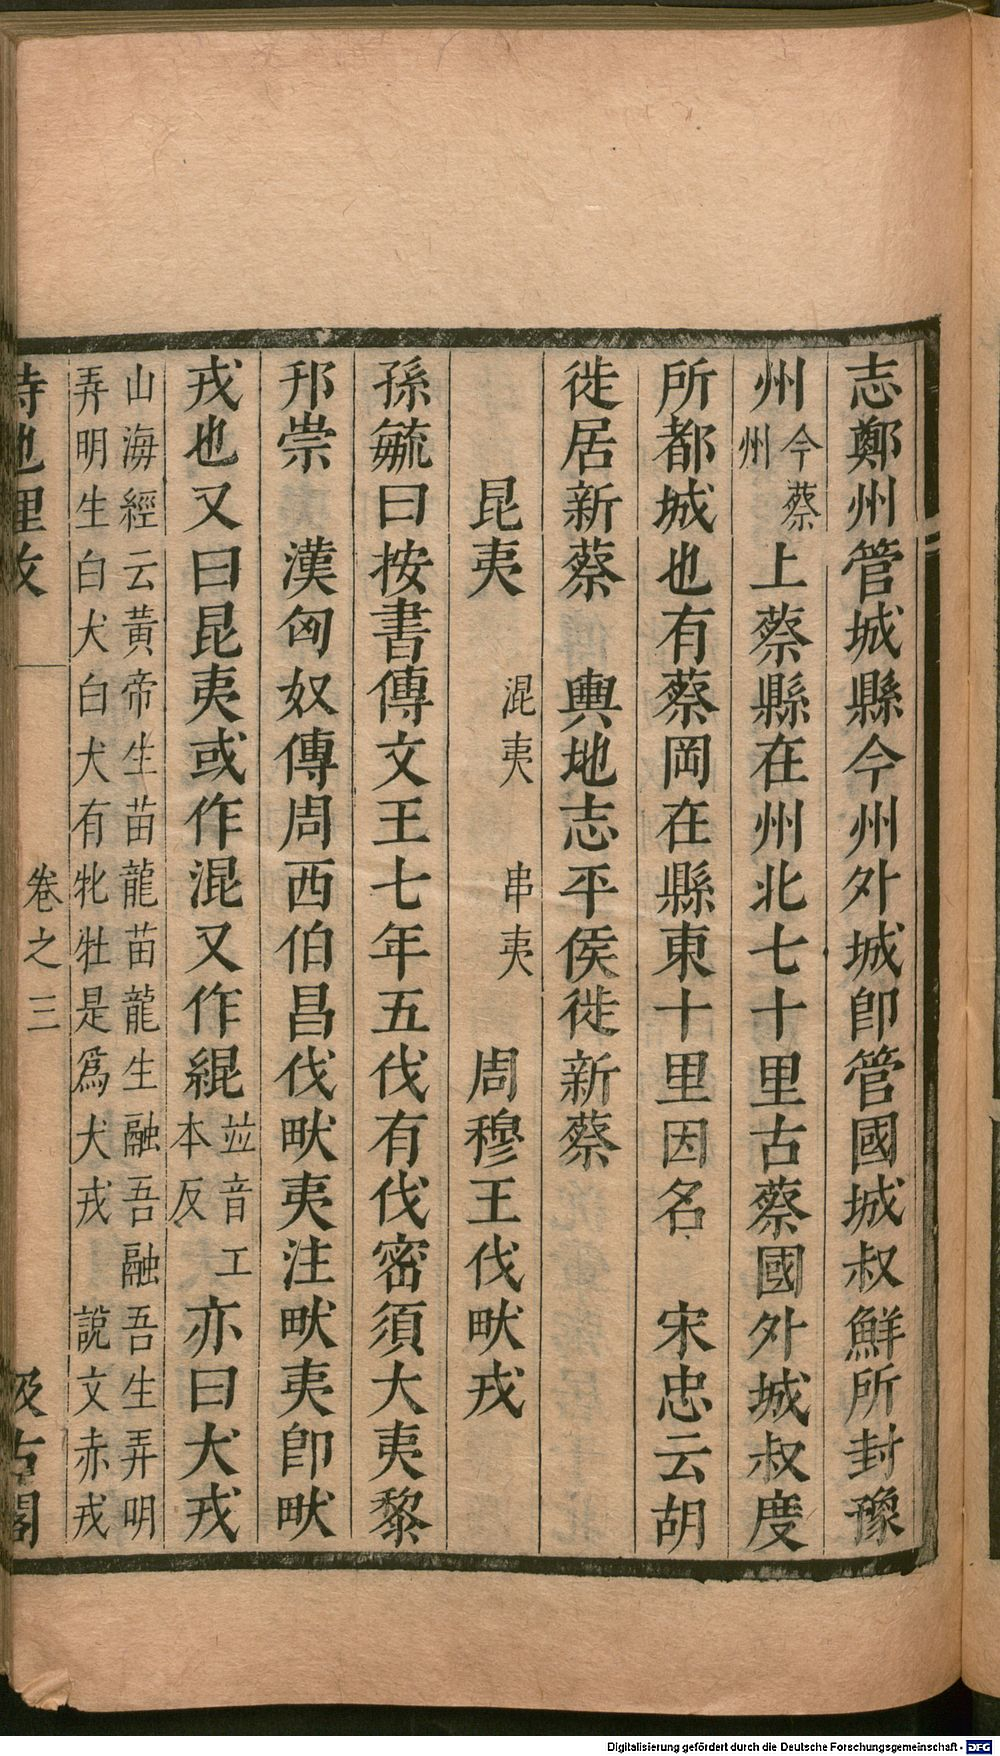 志鄭州管城縣今州外城卽管國城叔鮮所封豫
州今蔡州上蔡縣在州北七十里古蔡國外城叔度
所都城也有蔡岡在縣東十里因名　宋忠云胡
徙居新蔡　輿地志平侯徙新蔡
昆夷　混夷　串夷　周穆王伐畎戎
孫毓曰按書傳文王七年五伐有伐密須大夷黎
邘崇　漢匈奴傳周西伯昌伐畎夷注畎夷卽畎
戎也又曰昆夷或作混又作緄並音工本反亦曰犬戎
山海經云黃帝生苗龍苗龍生融吾融吾生弄明
弄明生白犬白犬有牝牡是爲犬戎　說文赤戎
詩地理攷　卷之三　汲古閣
Digitalisierung gefördert durch die Deutsche Forschungsgemeinschaft - DFG